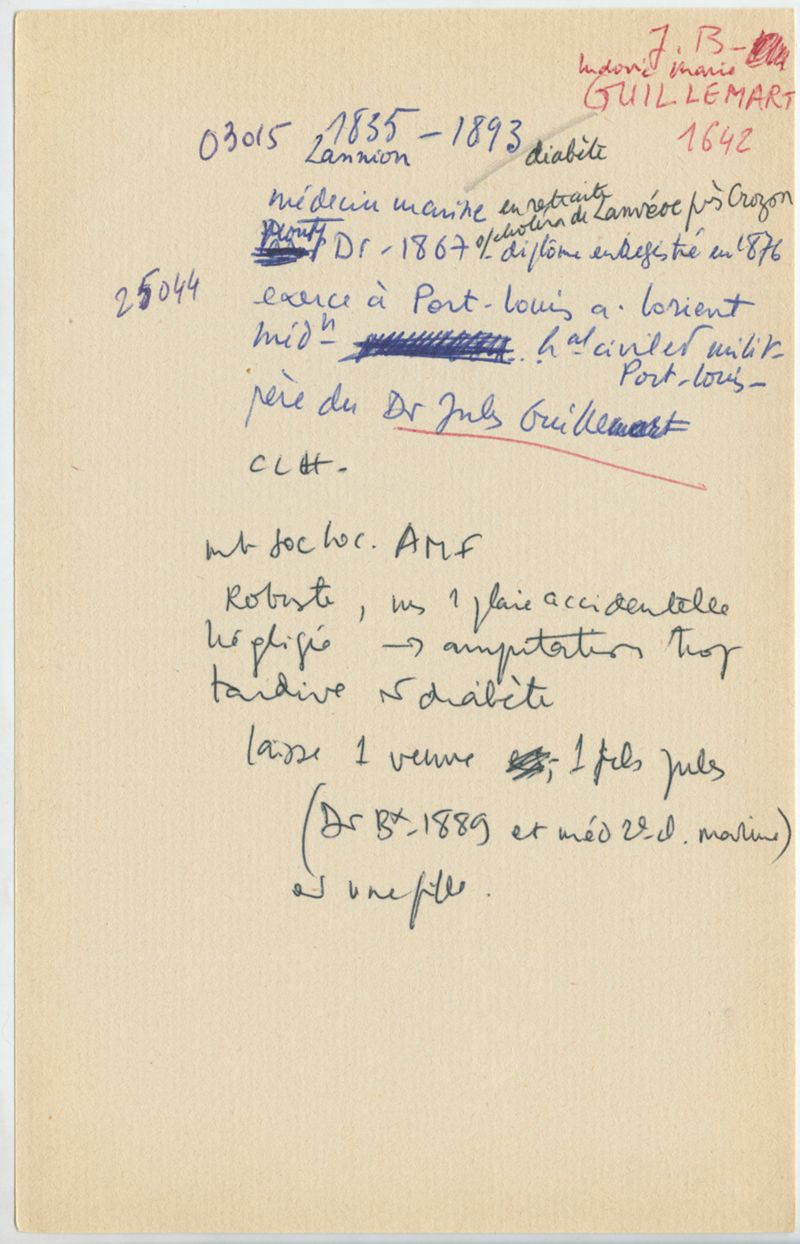 J. B -
Ludovic Marie
GUILLEMART
1642
03015 1835 - 1893
Lannion diabète
médecin marine en retraite
s/choléra de Lanvéoc près Crozon
Dr - 1867 diplôme enregistré en 1876
25044 exerce à Port-Louis a. Lorient
médn hal civil et milit-
Port-Louis-
père du Dr Jules Guillemart
CLH-
mb soc loc. AMF
Robuste, 1 plaie accidentelle
négligée → amputation trop
tardive diabète
laisse 1 veuve, 1 fils Jules
(Dr Bx-1889 et méd 2e cl. marine)
et une fille.